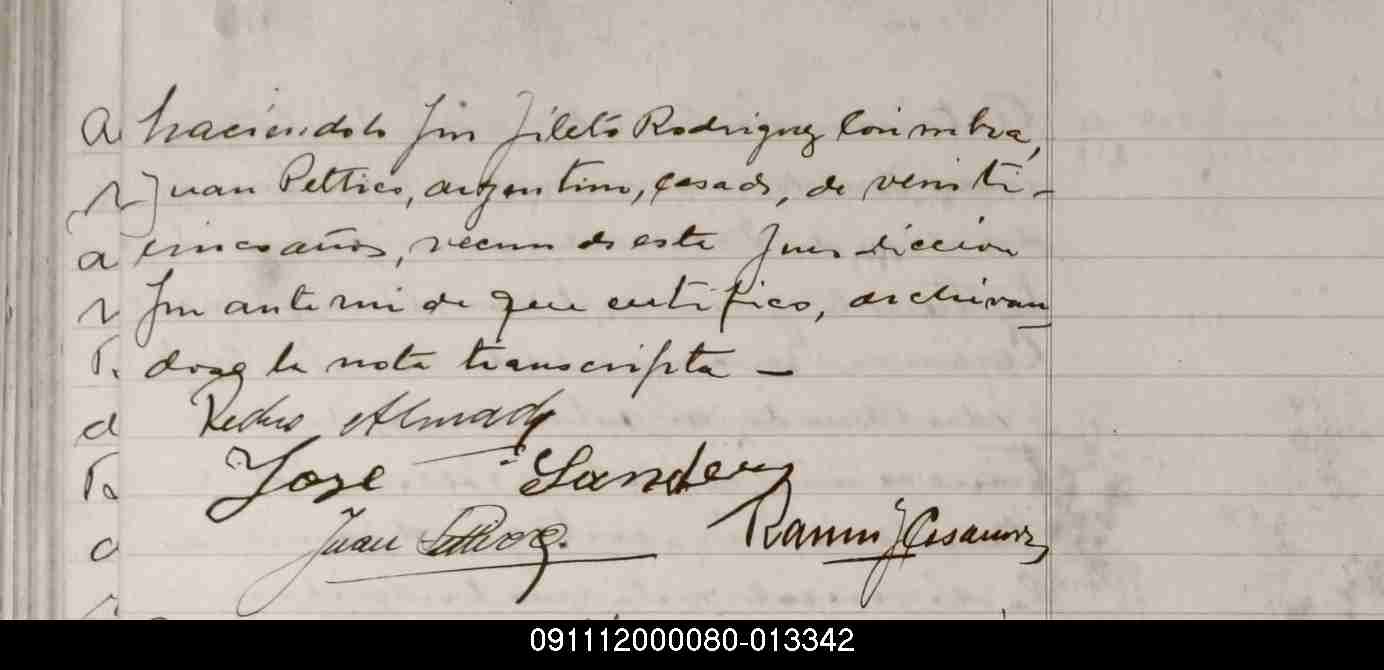 a haciendolo por Fileto Rodriguez Coimbra,
Juan Pettico, argentino, casado, de veinti-
a cinco años, vecino de esta Jurisdiccion
por ante mi de que certifico, archivan
dose la nota transcripta —
d Pedro Almada
Jose Sander
c Juan Ramon J Casanova
091112000080-013342